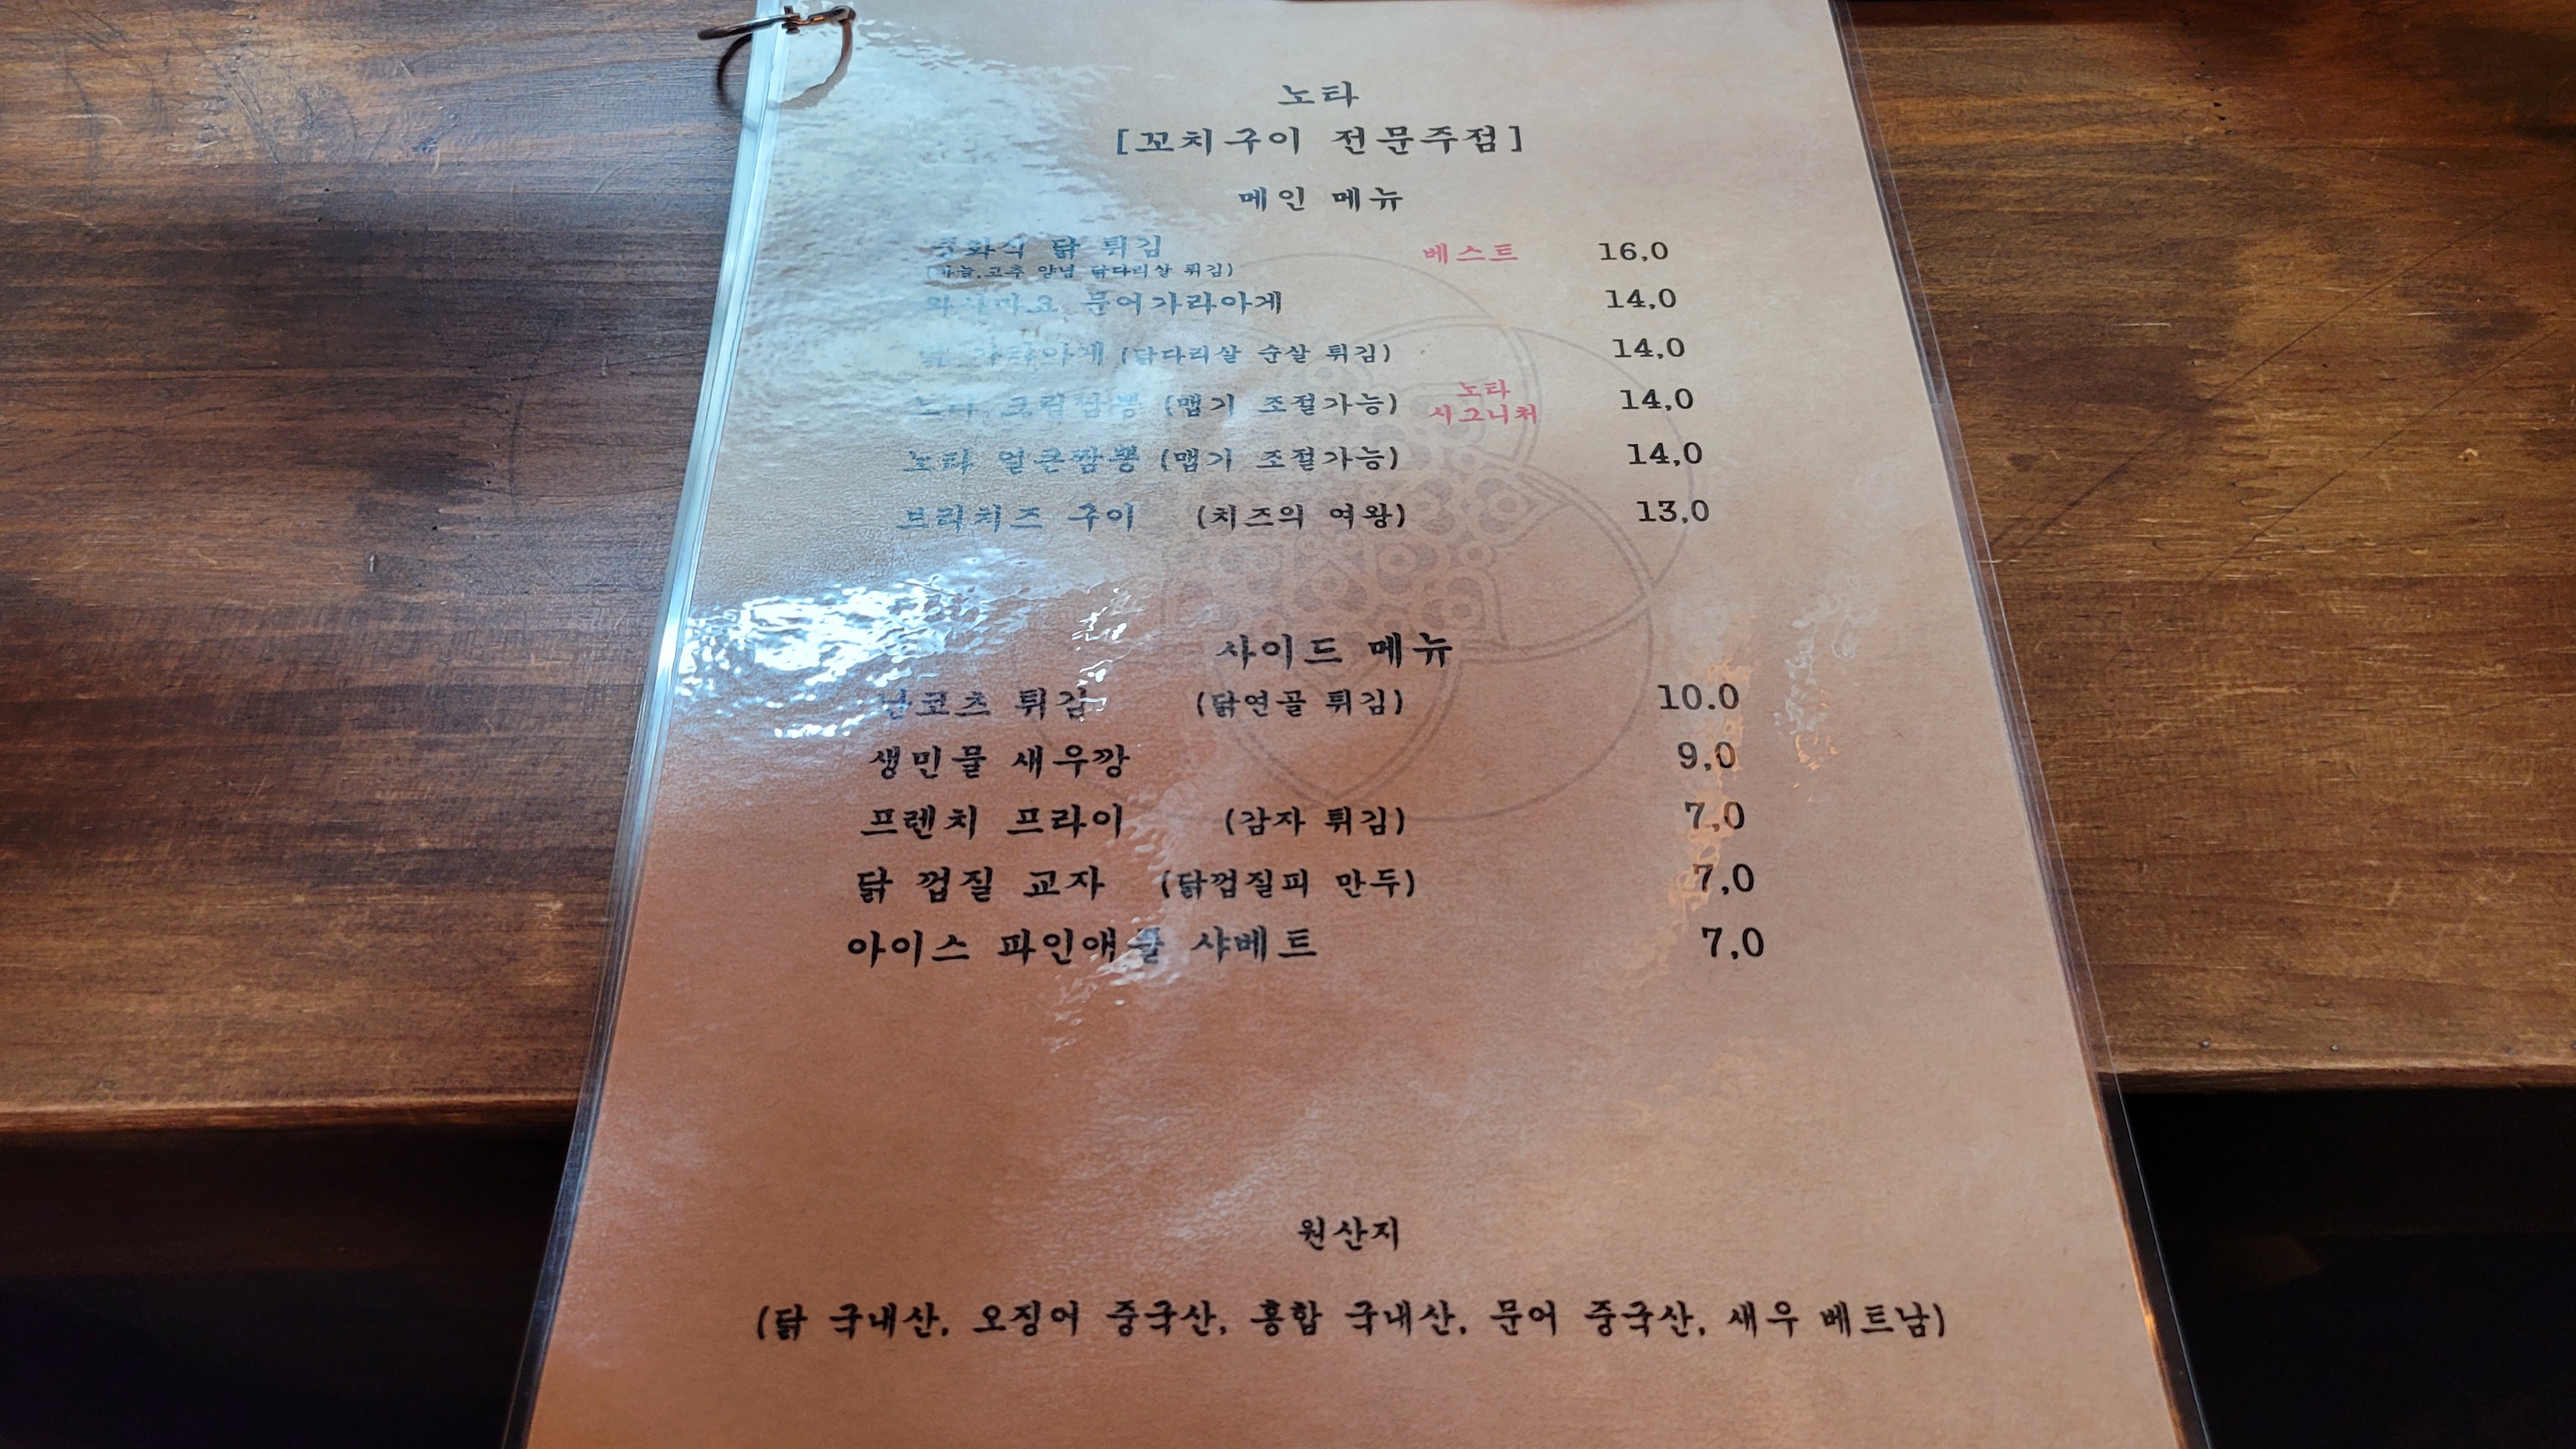 노타
[꼬치구이 전문주점]
메인 메뉴
중화식 닭 튀김 베스트 16,0
(마늘,고추 양념 닭다리살 튀김)
와사마요 문어가라아게 14,0
닭 가라아게 (닭다리살 순살 튀김) 14,0
노타 크림짬뽕 (맵기 조절가능) 노타 시그니처 14,0
노타 얼큰짬뽕 (맵기 조절가능) 14,0
브리치즈 구이 (치즈의 여왕) 13,0
사이드 메뉴
난코츠 튀김 (닭연골 튀김) 10.0
생민물 새우깡 9,0
프렌치 프라이 (감자 튀김) 7,0
닭 껍질 교자 (닭껍질피 만두) 7,0
아이스 파인애플 샤베트 7,0
원산지
(닭 국내산, 오징어 중국산, 홍합 국내산, 문어 중국산, 새우 베트남)